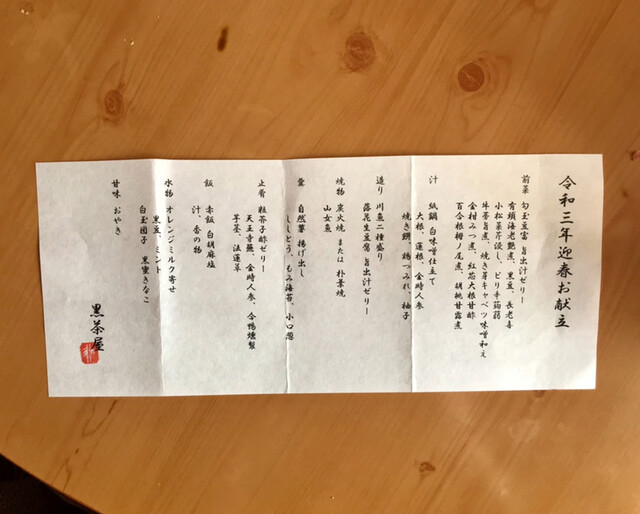 令和三年迎春お献立
前菜 勾玉豆富 旨出汁ゼリー
有頭海老艶煮、黒豆、長老喜
小松菜芥浸し、ピリ辛蒟蒻
牛蒡旨煮、焼き芽キャベツ味噌和え
金柑みつ煮、紅芯大根甘酢
百合根柳ノ尾煮、胡桃甘露煮
汁 紙鍋 白味噌仕立て
大根、蓮根、金時人参
焼き餅、鶏つみれ、柚子
造り 川魚二種盛り
落花生豆腐 旨出汁ゼリー
焼物 炭火焼 または 朴葉焼
山女魚
自然薯 揚げ出し
ししとう、もみ海苔、小口葱
止肴 粒芥子酢ゼリー
天王寺蕪、金時人参、合鴨燻製
芋茎、法蓮草
飯 赤飯 白胡麻塩
汁 香の物
水物 オレンジミルク寄せ
黒豆、ミント
白玉団子 黒蜜きなこ
甘味 おやき
黒茶屋